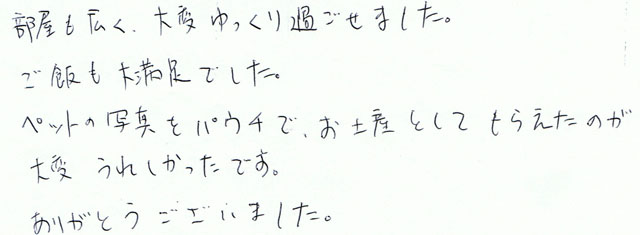 部屋も広く、大変ゆっくり過ごせました。
ご飯も大満足でした。
ペットの写真をパウチで、お土産としてもらえたのが
大変うれしかったです。
ありがとうございました。